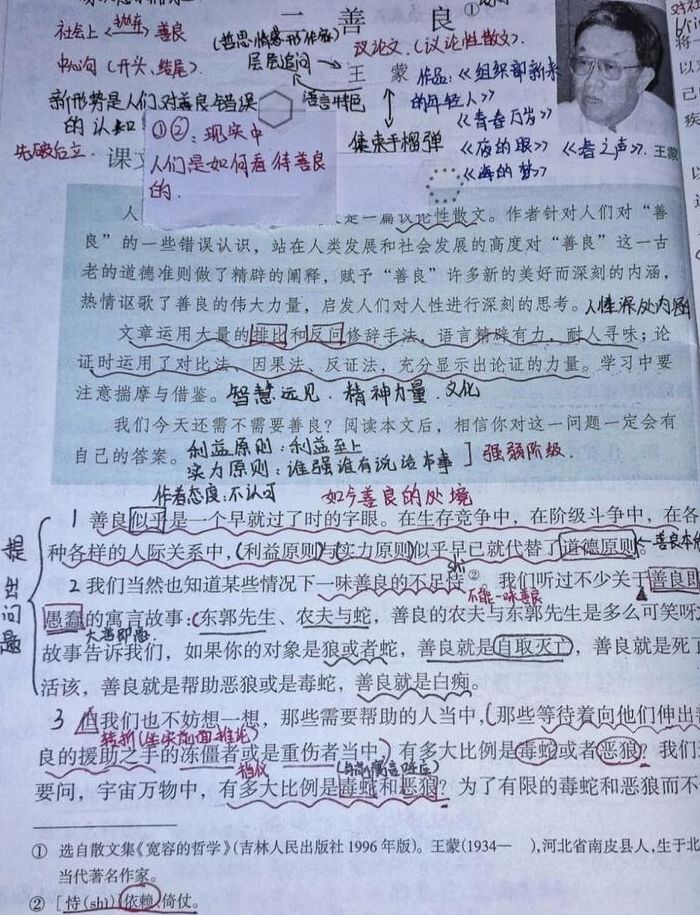 一 善 良①
社会上〈抛弃〉善良
(哲思情爱形作敏)
议论文.(议论性散文).
中心句(开头、结尾).
层层追问→
王 蒙
作品:《组织部新来
新形势是人们对善良错误
语言特色
的年轻人》
的认知
《青春万岁》
①②:现实中
集束手榴弹
《夜的眼》《春之声》.
王蒙
先破后立.
课文
人们是如何看待善良
《海的梦》
的.
是一篇议论性散文。作者针对人们对“善
良”的一些错误认识,站在人类发展和社会发展的高度对“善良”这一古
老的道德准则做了精辟的阐释,赋予“善良”许多新的美好而深刻的内涵,
热情讴歌了善良的伟大力量,启发人们对人性进行深刻的思考。人性深处内涵
文章运用大量的排比和反问修辞手法,语言精辟有力,耐人寻味;论
证时运用了对比法、因果法、反证法,充分显示出论证的力量。学习中要
注意揣摩与借鉴。智慧远见.精神力量.文化
我们今天还需不需要善良?阅读本文后,相信你对这一问题一定会有
自己的答案。利益原则:利益至上
实力原则:谁强谁有说话本事
]强弱阶级.
作者态度:不认可
如今善良的处境
提出问题
1 善良似乎是一个早就过了时的字眼。在生存竞争中,在阶级斗争中,在各
种各样的人际关系中,(利益原则)与(实力原则)似乎早已就代替了道德原则。
shì
2 我们当然也知道某些情况下一味善良的不足恃②。我们听过不少关于善良即
不能一味善良
愚蠢的寓言故事:东郭先生、农夫与蛇,善良的农夫与东郭先生是多么可笑呀
大善即愚
故事告诉我们,如果你的对象是狼或者蛇,善良就是自取灭亡,善良就是死了
活该,善良就是帮助恶狼或是毒蛇,善良就是白痴。
3 但我们也不妨想一想,那些需要帮助的人当中,(那些等待着向他们伸出善
良的援助之手的冻僵者或是重伤者当中)有多大比例是毒蛇或者恶狼?我们
要问,宇宙万物中,有多大比例是毒蛇和恶狼?为了有限的毒蛇和恶狼而不
① 选自散文集《宽容的哲学》(吉林人民出版社1996年版)。王蒙(1934— ),河北省南皮县人,生于北
当代著名作家。
② [恃(shì)]依赖,倚仗。